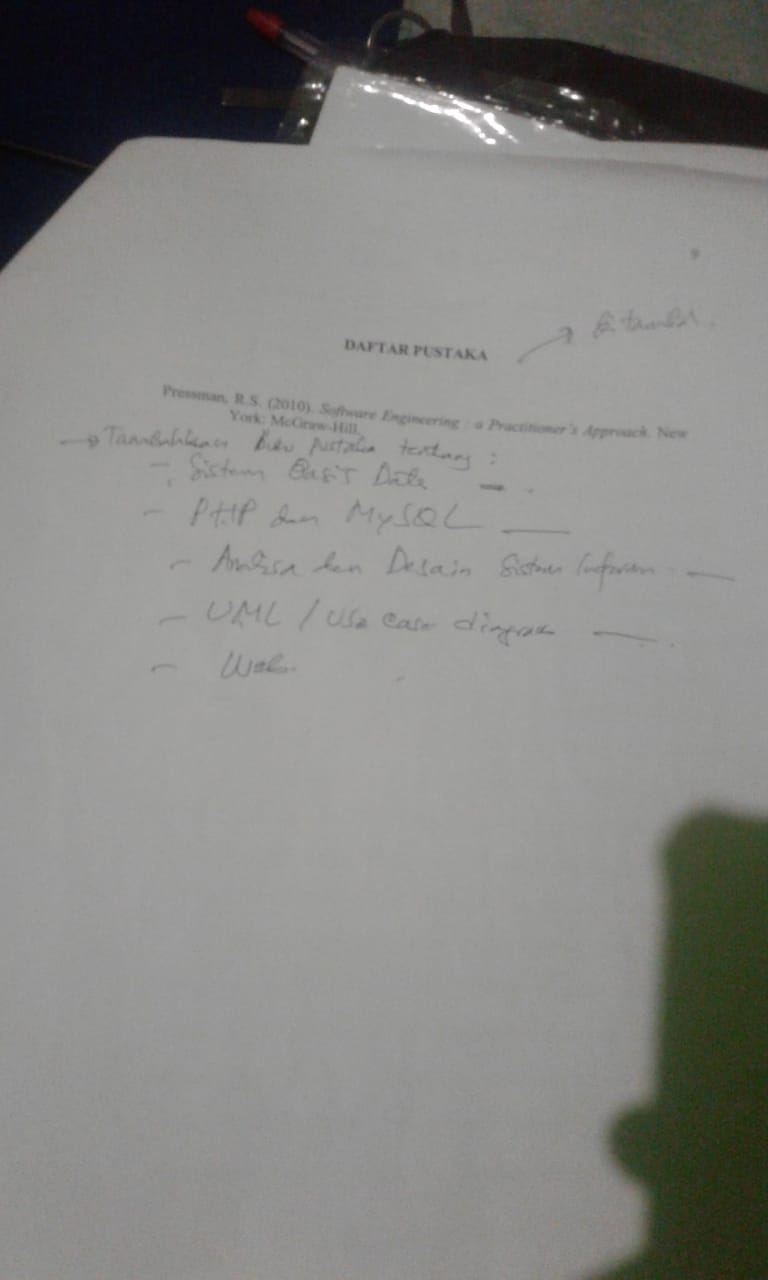 9
DAFTAR PUSTAKA
di tambah.
Pressman, R.S. (2010). Software Engineering : a Practitioner's Approach. New
York: McGraw-Hill.
Tambahkan Buku pustaka tentang :
- Sistem Basis Data
- PHP dan MySQL
- Analisa dan Desain Sistem Informasi
- UML / Use case diagram
- Web.